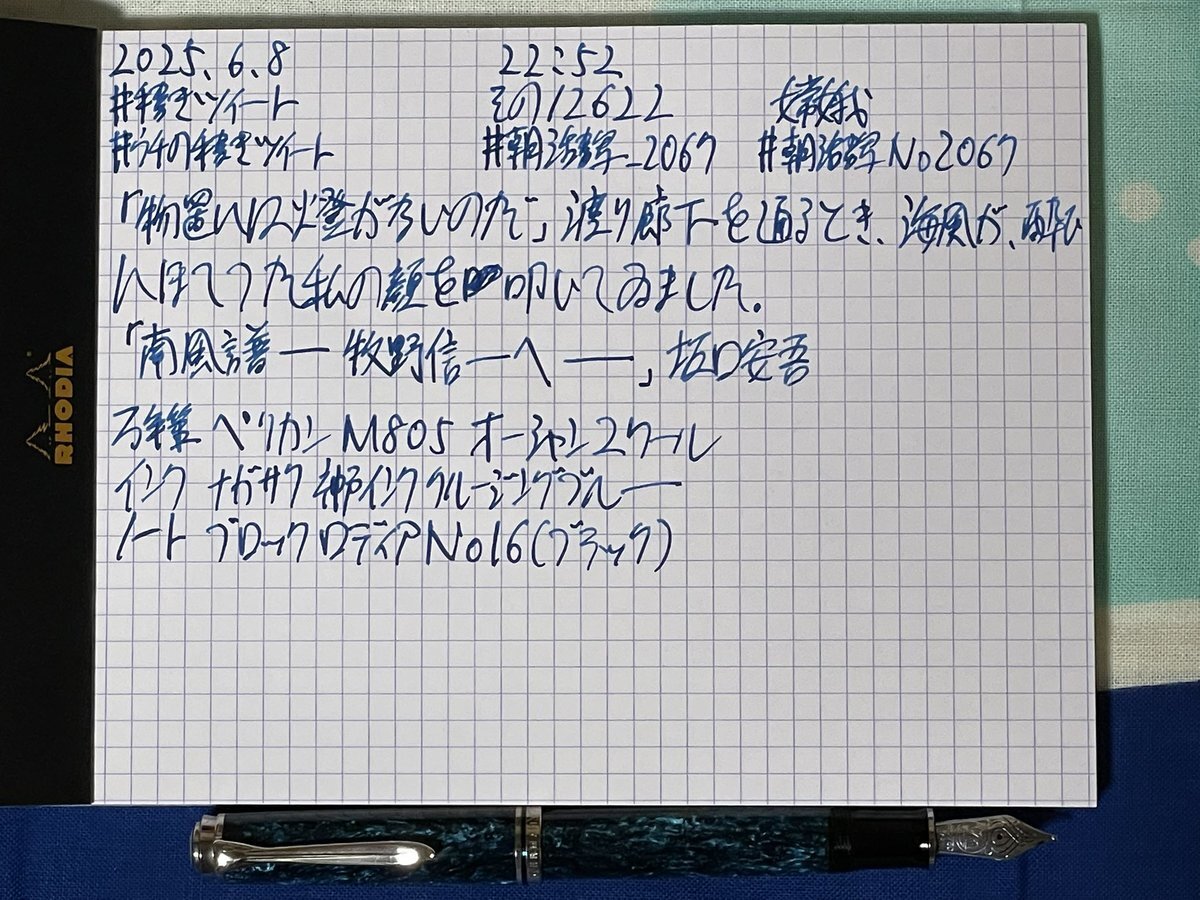 2025.6.8 22:52
#手書きツイート その12622
#ウチの手書きツイート #朝活書写_2067 #朝活書写No2067
「物置には燈がないので」渡り廊下を通るとき、海風が、酔ひ
にほてつた私の顔を叩いてゐました。
「南風譜――牧野信一へ――」坂口安吾
万年筆 ペリカン M805 オーシャンスワール
インク ナガサワ 神戸インク クルージングブルー
ノート ブロックロディアNo16(ブラック)
RHODIA